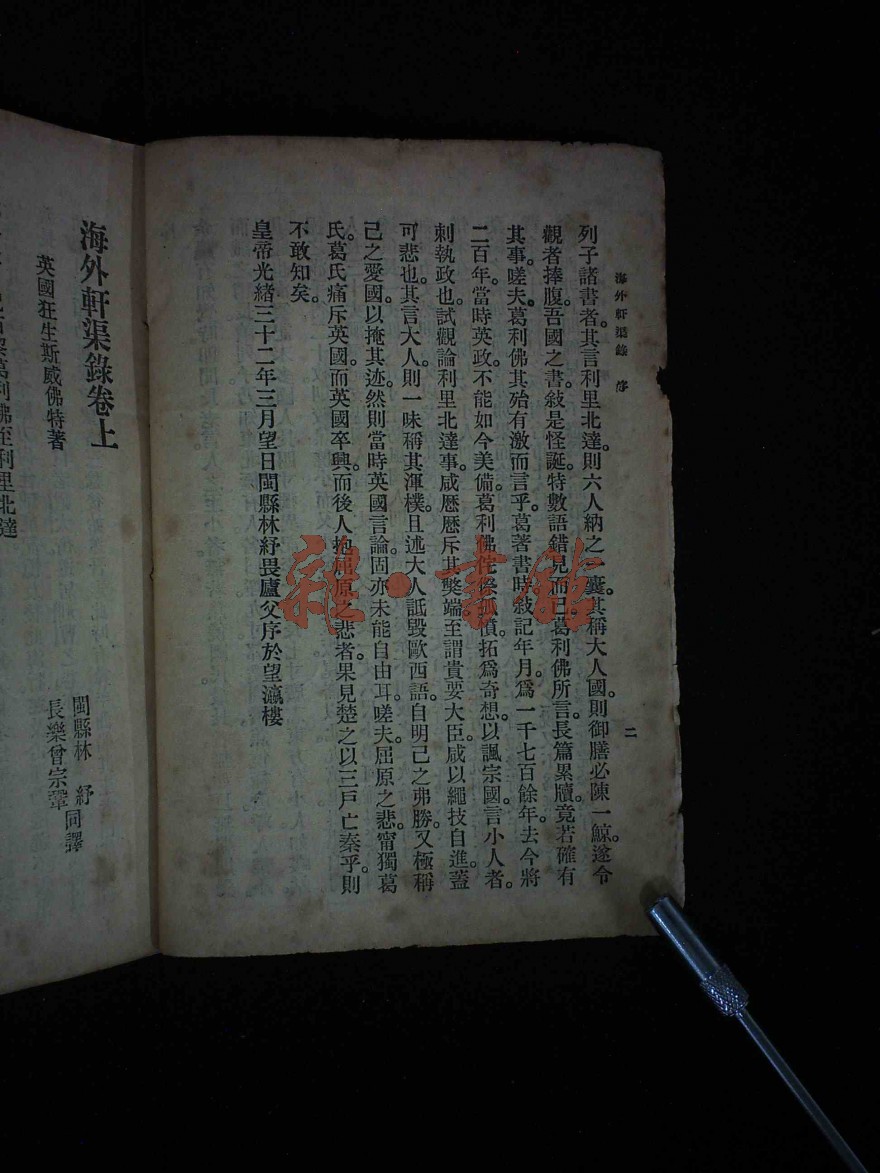 海外軒渠錄 序
二
列子諸書者。其言利里北達。則六人納之一囊。其稱大人國。則御膳必陳一鯨。遂令
觀者捧腹。吾國之書敍是怪誕。特數語錯見而已。葛利佛所言。長篇累牘。竟若確有
其事。嗟夫。葛利佛其殆有激而言乎。葛著書時敍記年月。爲一千七百餘年。去今將
二百年。當時英政不能如今美備。葛利佛侘傺孤憤。拓爲奇想。以諷宗國。言小人者。
刺執政也。試觀論利里北達事。咸歷歷斥其弊端。至謂貴要大臣。咸以繩技自進。蓋
可悲也。其言大人。則一味稱其渾樸。且述大人詆毀歐西語。自明己之弗勝。又極稱
己之愛國。以掩其迹。然則當時英國言論。固亦未能自由耳。嗟夫。屈原之悲。甯獨葛
氏。葛氏痛斥英國。而英國卒興。而後人抱屈原之悲者。果見楚之以三戶亡秦乎。則
不敢知矣。
皇帝光緒三十二年三月望日閩縣林紓畏廬父序於望瀛樓
海外軒渠錄卷上
英國狂生斯威佛特著
閩縣林 紓同譯
長樂曾宗鞏
葛利佛至利里北達
雜·書館